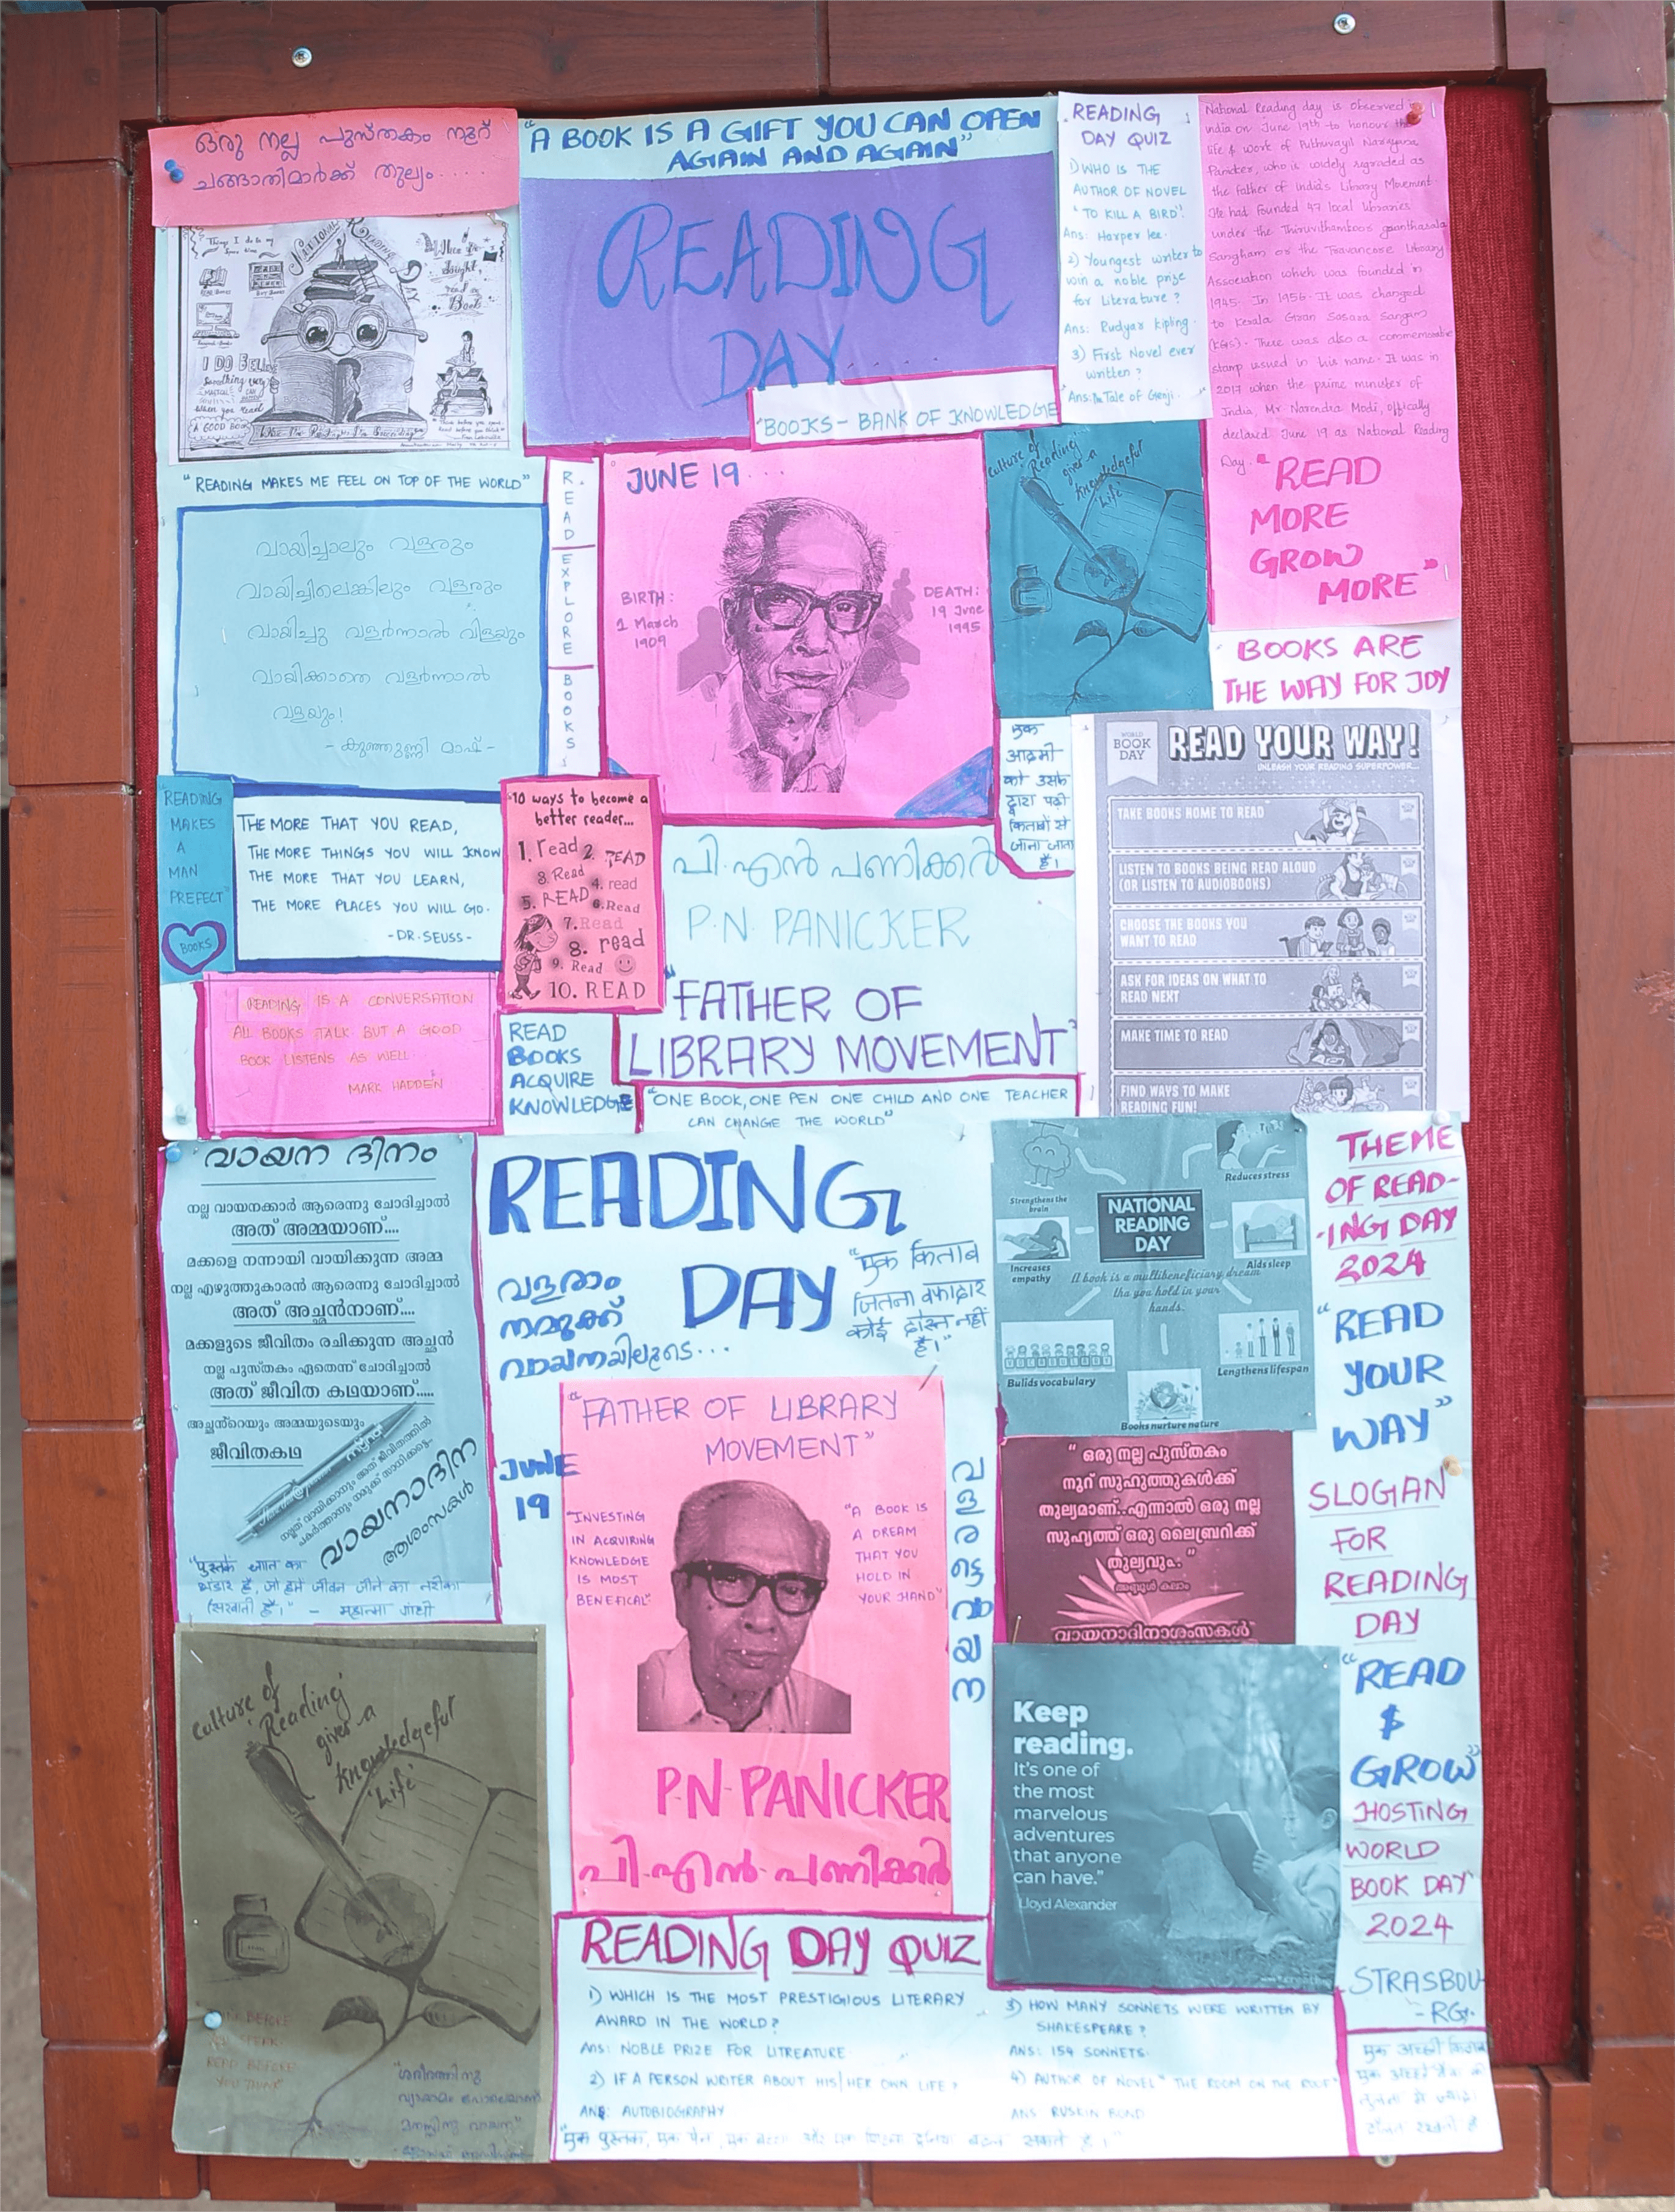 ഒരു നല്ല പുസ്തകം നൂറ്
ചങ്ങാതിമാർക്ക് തുല്യം.....
"A BOOK IS A GIFT YOU CAN OPEN
AGAIN AND AGAIN"
READING
DAY......
"BOOKS- BANK OF KNOWLEDGE
READING
DAY QUIZ
1) WHO IS THE
AUTHOR OF NOVEL
"TO KILL A BIRD".
Ans: Harper lee.
2) Youngest writer to
win a noble prize
for Literature?
Ans: Rudyar Kipling.
3) First Novel ever
written?
Ans: The Tale of Genji.
National Reading day is observed in
india on June 19th to honour the
life & work of Puthuvayil Narayana
Panicker, who is widely regraded as
the father of India's Library Movement.
He had founded 47 local libraries
under the Thiruvithamkoor granthasala
Sangham or the Travancore Library
Association which was founded in
1945. In 1956. It was changed
to Kerala Gran Sasara Sangam
(KGS). There was also a commemorable
stamp issued in his name. It was in
2017 when the prime minister of
India, Mr. Narendra Modi, offically
declared June 19 as National Reading
Day.
"READ
MORE
GROW
MORE"
BOOKS ARE
THE WAY FOR JOY
Things I do in my
NATIONAL READING DAY
READ BOOKS
I DO
Something
When you Read
A GOOD BOOK
"READING MAKES ME FEEL ON TOP OF THE WORLD"
വായിച്ചാലും വളരും
വായിച്ചിലെങ്കിലും വളരും
വായിച്ചു വളർന്നാൽ വിളയും
വായിക്കാതെ വളർന്നാൽ
വളയും!
- കുഞ്ഞുണ്ണി മാഷ് -
READ
EXPLORE
BOOKS
JUNE 19...
BIRTH:
1 March
1909
DEATH:
19 June
1995
culture of
'Reading'
gives a
Knowledgeful
'Life'
एक
आदमी
को उसके
द्वारा पढ़ी
किताबों से
जाना जाता
है।
WORLD
BOOK
DAY
READ YOUR WAY!
UNLEASH YOUR READING SUPERPOWER...
TAKE BOOKS HOME TO READ
LISTEN TO BOOKS BEING READ ALOUD
(OR LISTEN TO AUDIOBOOKS)
CHOOSE THE BOOKS YOU
WANT TO READ
ASK FOR IDEAS ON WHAT TO
READ NEXT
MAKE TIME TO READ
FIND WAYS TO MAKE
READING FUN!
"READING
MAKES
A
MAN
PREFECT"
BOOKS
THE MORE THAT YOU READ,
THE MORE THINGS YOU WILL KNOW
THE MORE THAT YOU LEARN,
THE MORE PLACES YOU WILL GO.
-DR.SEUSS-
10 ways to become a
better reader...
1. read 2. READ
3. Read
4. read
5. READ 6. Read
7. Read
8. read
9. Read
10. READ
പി.എൻ പണിക്കർ
P.N. PANICKER
"FATHER OF
LIBRARY MOVEMENT"
READING IS A CONVERSATION
ALL BOOKS TALK BUT A GOOD
BOOK LISTENS AS WELL.
MARK HADDEN
READ
BOOKS
ACQUIRE
KNOWLEDGE
"ONE BOOK, ONE PEN ONE CHILD AND ONE TEACHER
CAN CHANGE THE WORLD"
വായന ദിനം
നല്ല വായനക്കാർ ആരെന്നു ചോദിച്ചാൽ
അത് അമ്മയാണ്....
മക്കളെ നന്നായി വായിക്കുന്ന അമ്മ
നല്ല എഴുത്തുകാരൻ ആരെന്നു ചോദിച്ചാൽ
അത് അച്ഛൻനാണ്....
മക്കളുടെ ജീവിതം രചിക്കുന്ന അച്ഛൻ
നല്ല പുസ്തകം ഏതെന്ന് ചോദിച്ചാൽ
അത് ജീവിത കഥയാണ്.....
അച്ഛൻ്റെയും അമ്മയുടെയും
ജീവിതകഥ
വായനാദിന
ആശംസകൾ
"पुस्तकें ज्ञान का
भंडार हैं, जो हमें जीवन जीने का तरीका
- महात्मा गांधी
READING
DAY
വളരാം
നമുക്ക്
വായനയിലൂടെ...
"एक किताब
जितना वफादार
कोई दोस्त नहीं
है।"
JUNE
19
"FATHER OF LIBRARY
MOVEMENT"
"INVESTING
IN ACQUIRING
KNOWLEDGE
IS MOST
BENEFICAL"
"A BOOK IS
A DREAM
THAT YOU
HOLD IN
YOUR HAND"
P.N.PANICKER
പി.എൻ.പണിക്കർ
വളരട്ടെ വായന
Strengthens the
brain
Reduces stress
NATIONAL
READING
DAY
Increases
empathy
Aids sleep
A book is a multibeneficiary dream
tha you hold in your
hands.
Bulids vocabulary
Lengthens lifespan
Books nurture nature
THEME
OF READ-
-ING DAY
2024
"READ
YOUR
WAY"
SLOGAN
FOR
READING
DAY
"READ
$
GROW"
HOSTING
WORLD
BOOK DAY
2024
STRASBOU-
-RG.
" ഒരു നല്ല പുസ്തകം
നൂറ് സുഹൃത്തുകൾക്ക്
തുല്യമാണ്..എന്നാൽ ഒരു നല്ല
സുഹൃത്ത് ഒരു ലൈബ്രറിക്ക്
തുല്യവും.."
അബ്ദുൾ കലാം
വായനാദിനാശംസകൾ
Keep
reading.
It's one of
the most
marvelous
adventures
that anyone
can have."
Lloyd Alexander
culture of
'Reading'
gives a
Knowledgeful
'Life'
READ BEFORE
YOU THINK"
"ശരീരത്തിനു
വ്യായാമം പോലെയാണ്
മനസ്സിനു വായന"
READING DAY QUIZ
1) WHICH IS THE MOST PRESTIGIOUS LITERARY
AWARD IN THE WORLD?
Ans: NOBLE PRIZE FOR LITREATURE.
2) IF A PERSON WRITER ABOUT HIS/HER OWN LIFE?
ANS: AUTOBIOGRAPHY
3) HOW MANY SONNETS WERE WRITTEN BY
SHAKESPEARE?
ANS: 154 SONNETS.
4) AUTHOR OF NOVEL "THE ROOM ON THE ROOF"
ANS RUSKIN BOND
"एक पुस्तक, एक पेन, एक बच्चा और एक शिक्षक दुनिया बदल सकते हैं।"